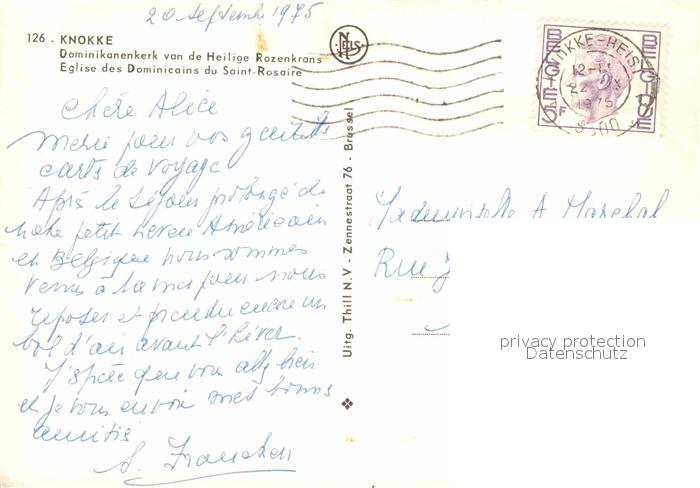 20 septembre 1975
126 - KNOKKE
Dominikanenkerk van de Heilige Rozenkrans
Eglise des Dominicains du Saint-Rosaire
NELS
Chère Alice
Merci pour vos gentilles
cartes de voyage
Après le séjour prolongé de
notre petit neveu Américain
en Belgique nous sommes
venus à la mer pour nous
reposer et prendre encore un
bol d'air avant l'hiver.
J'espère que vous allez bien
et je vous envoie mes bonnes
amitiés
Uitg. Thill N.V - Zennestraat 76 - Brussel
KNOKKE-HEIST
12-
22
1975
BELGIE
BELGIQUE
F
Mademoiselle A Marechal
Rue
privacy protection
Datenschutz